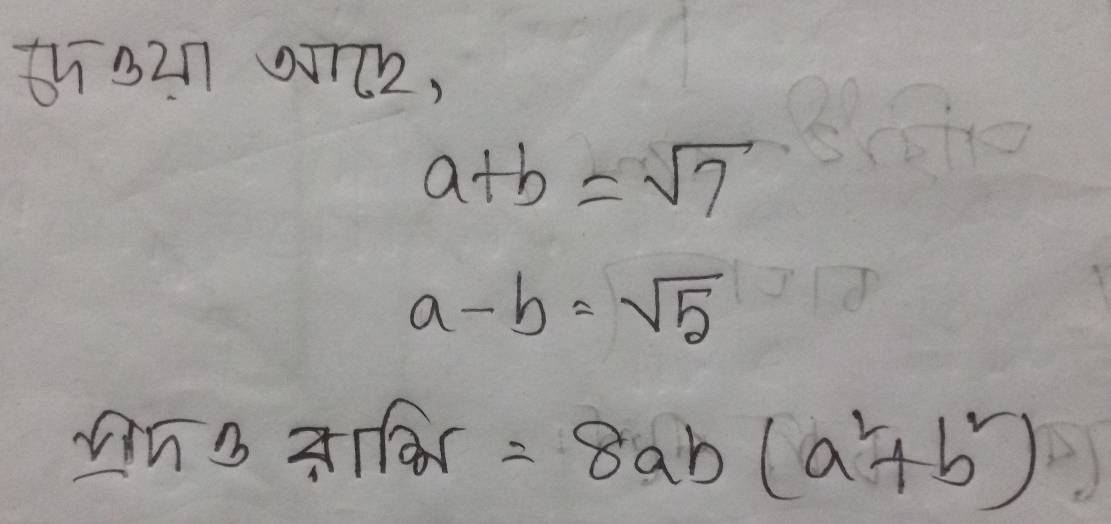 দেওয়া আছে,
a+b = √7
a-b = √5
প্রদত্ত রাশি = 8ab (a²+b²)